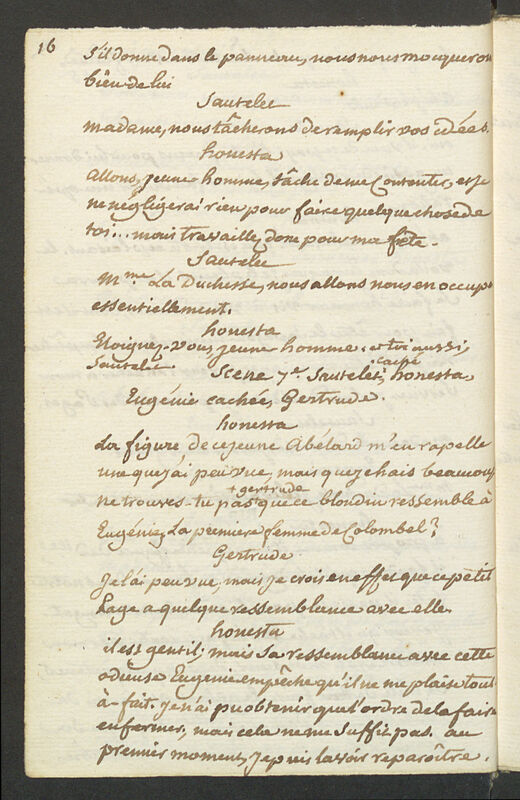 16
S'il donne dans le panneau, nous nous moqueron
bien de lui
Sautelet
madame, nous tâcherons de remplir vos idées.
honesta
Allons, jeune homme, tâche de me Contenter, et je
ne négligerai rien pour faire quelque chose de
toi... mais travaillez donc pour ma fête.
Sautelet
Mme La Duchesse, nous allons nous en occuper
essentiellement.
honesta
Eloignez-vous, jeune homme; et toi aussi,
Sautelet Scene 7e Sautelet caché, honesta,
Eugénie cachée, Gertrude.
honesta
La figure de ce jeune Abélard m'en rapelle
une que j'ai peu vue, mais que je hais beaucoup
ne trouves-tu pas + gertrude que ce blondin ressemble à
Eugénie, La premiere femme de Colombel?
Gertrude
Je l'ai peu vue, mais je crois en effet que ce petit
Page a quelque ressemblance avec elle.
honesta
il est gentil; mais sa ressemblance avec cette
odieuse Eugénie empêche qu'il ne me plaise tout
à-fait. Je n'ai pu obtenir que l'ordre de la faire
enfermer, mais cela ne me suffit pas. au
premier moment, Je puis la voir reparoître.